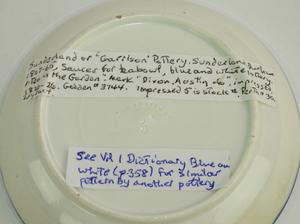 Sunderland or "Garrison" Pottery. Sunderland Durham
1807-65, Saucer for teabowl, blue and white
"in the Garden". Mark "Dixon, Austin &Co", impressed
1820-26. Godden # 3744. Impressed 5 is stock #
See Vol 1 Dictionary Blue and
white (p358) for similar
pattern by another pottery